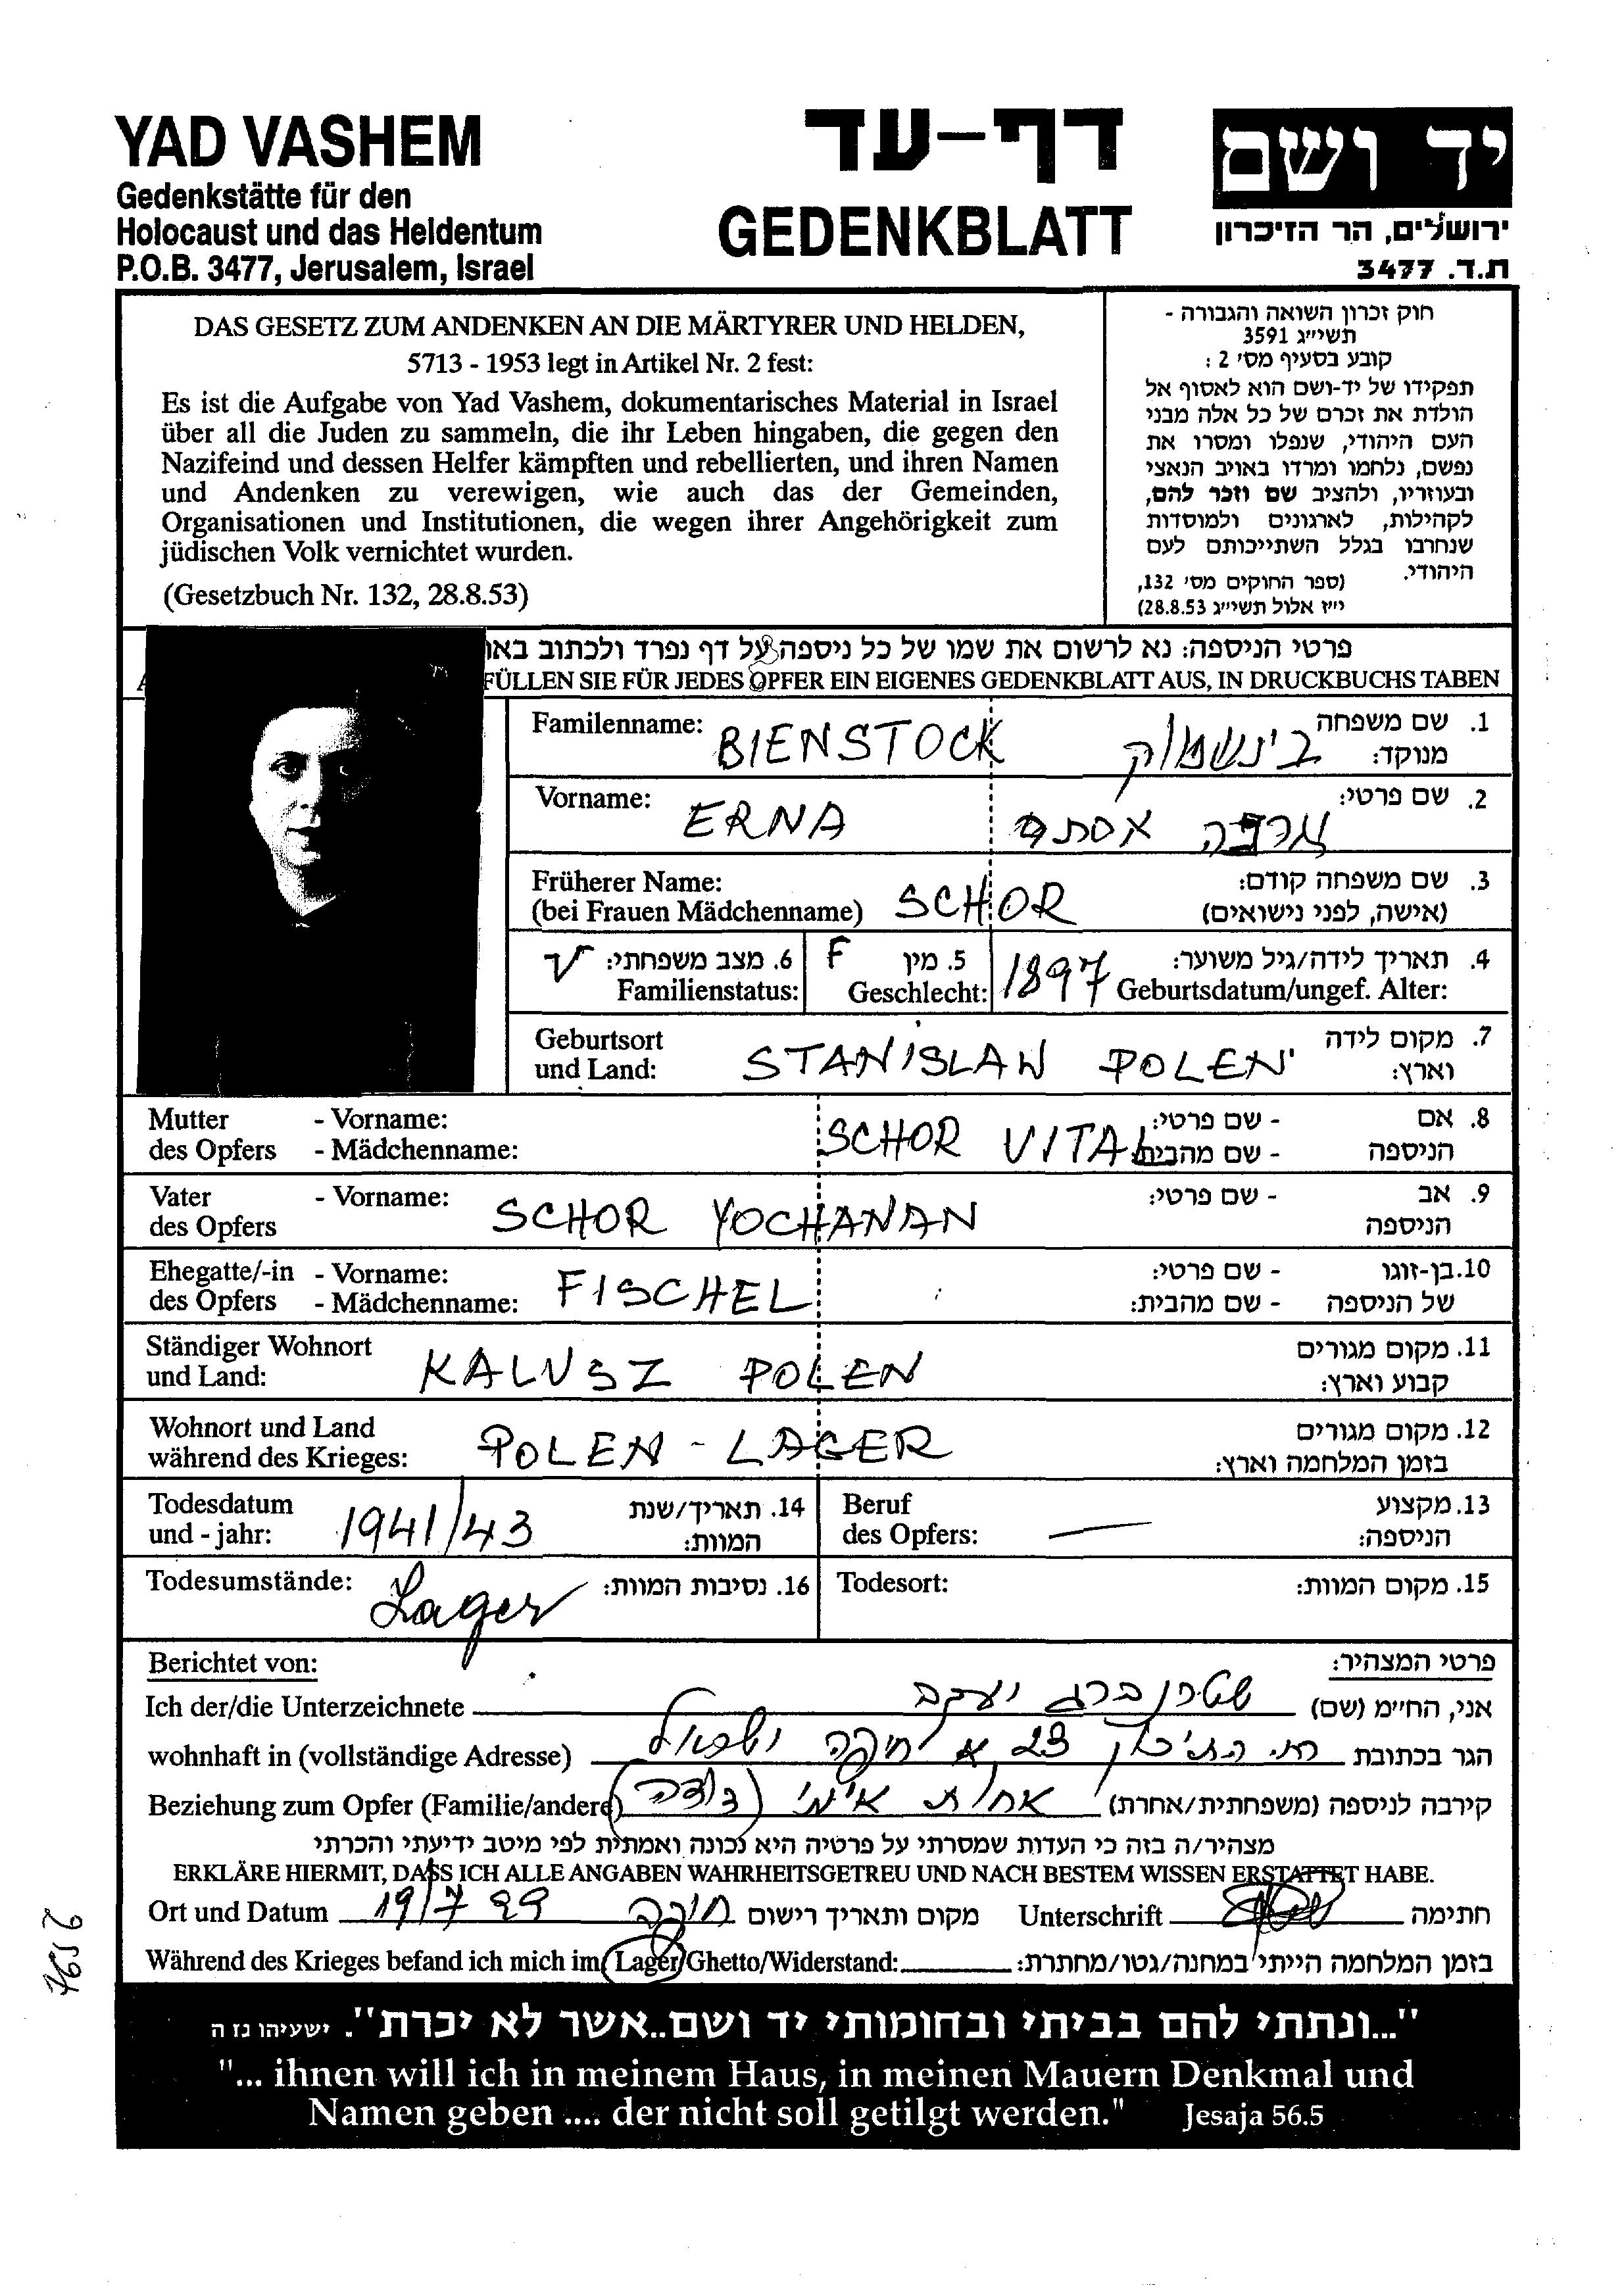 YAD VASHEM
Gedenkstätte für den
Holocaust und das Heldentum
P.O.B. 3477, Jerusalem, Israel
דף-עד
GEDENKBLATT
יד ושם
ירושלים, הר הזיכרון
ת.ד. 3477
DAS GESETZ ZUM ANDENKEN AN DIE MÄRTYRER UND HELDEN,
5713 - 1953 legt in Artikel Nr. 2 fest:
Es ist die Aufgabe von Yad Vashem, dokumentarisches Material in Israel
über all die Juden zu sammeln, die ihr Leben hingaben, die gegen den
Nazifeind und dessen Helfer kämpften und rebellierten, und ihren Namen
und Andenken zu verewigen, wie auch das der Gemeinden,
Organisationen und Institutionen, die wegen ihrer Angehörigkeit zum
jüdischen Volk vernichtet wurden.
(Gesetzbuch Nr. 132, 28.8.53)
חוק זכרון השואה והגבורה -
תשי״ג 3591
קובע בסעיף מס׳ 2 :
תפקידו של יד-ושם הוא לאסוף אל
הולדת את זכרם של כל אלה מבני
העם היהודי, שנפלו ומסרו את
נפשם, נלחמו ומרדו באויב הנאצי
ובעוזריו, ולהציב שם וזכר להם,
לקהילות, לארגונים ולמוסדות
שנחרבו בגלל השתייכותם לעם
היהודי. (ספר החוקים מס׳ 132,
י״ז אלול תשי״ג 28.8.53)
פרטי הניספה: נא לרשום את שמו של כל ניספה על דף נפרד ולכתוב באו
FÜLLEN SIE FÜR JEDES OPFER EIN EIGENES GEDENKBLATT AUS, IN DRUCKBUCHS TABEN
Familenname: BIENSTOCK בינשטוק 1. שם משפחה
מנוקד:
Vorname: ERNA אסתר 2. שם פרטי:
Früherer Name: SCHOR 3. שם משפחה קודם:
(bei Frauen Mädchenname) (אישה, לפני נישואים)
6. מצב משפחתי: F 5. מין 1897 4. תאריך לידה/גיל משוער:
Familienstatus: Geschlecht: Geburtsdatum/ungef. Alter:
Geburtsort STANISLAW POLEN 7. מקום לידה
und Land: וארץ:
Mutter - Vorname: SCHOR VITAL - שם פרטי: 8. אם
des Opfers - Mädchenname: - שם מהבית: הניספה
Vater - Vorname: SCHOR YOCHANAN - שם פרטי: 9. אב
des Opfers הניספה
Ehegatte/-in - Vorname: FISCHEL - שם פרטי: 10. בן-זוגו
des Opfers - Mädchenname: - שם מהבית: של הניספה
Ständiger Wohnort KALUSZ POLEN 11. מקום מגורים
und Land: קבוע וארץ:
Wohnort und Land POLEN - LAGER 12. מקום מגורים
während des Krieges: בזמן המלחמה וארץ:
Todesdatum 1941/43 14. תאריך/שנת
und - jahr: המוות:
Beruf — 13. מקצוע
des Opfers: הניספה:
Todesumstände: Lager 16. נסיבות המוות:
Todesort: 15. מקום המוות:
Berichtet von: פרטי המצהיר:
Ich der/die Unterzeichnete שטרנברג יעקב אני, החי״מ (שם)
wohnhaft in (vollständige Adresse) 23 א חיפה ישראל הגר בכתובת
Beziehung zum Opfer (Familie/andere) אחות אימי (דודה) קירבה לניספה (משפחתית/אחרת)
מצהיר/ה בזה כי העדות שמסרתי על פרטיה היא נכונה ואמתית לפי מיטב ידיעתי והכרתי
ERKLÄRE HIERMIT, DASS ICH ALLE ANGABEN WAHRHEITSGETREU UND NACH BESTEM WISSEN ERSTATTET HABE.
Ort und Datum 19/7 99 חיפה מקום ותאריך רישום Unterschrift חתימה
Während des Krieges befand ich mich im Lager/Ghetto/Widerstand: בזמן המלחמה הייתי במחנה/גטו/מחתרת:
"...ונתתי להם בביתי ובחומותי יד ושם..אשר לא יכרת". ישעיהו נז ה
"... ihnen will ich in meinem Haus, in meinen Mauern Denkmal und
Namen geben .... der nicht soll getilgt werden." Jesaja 56.5